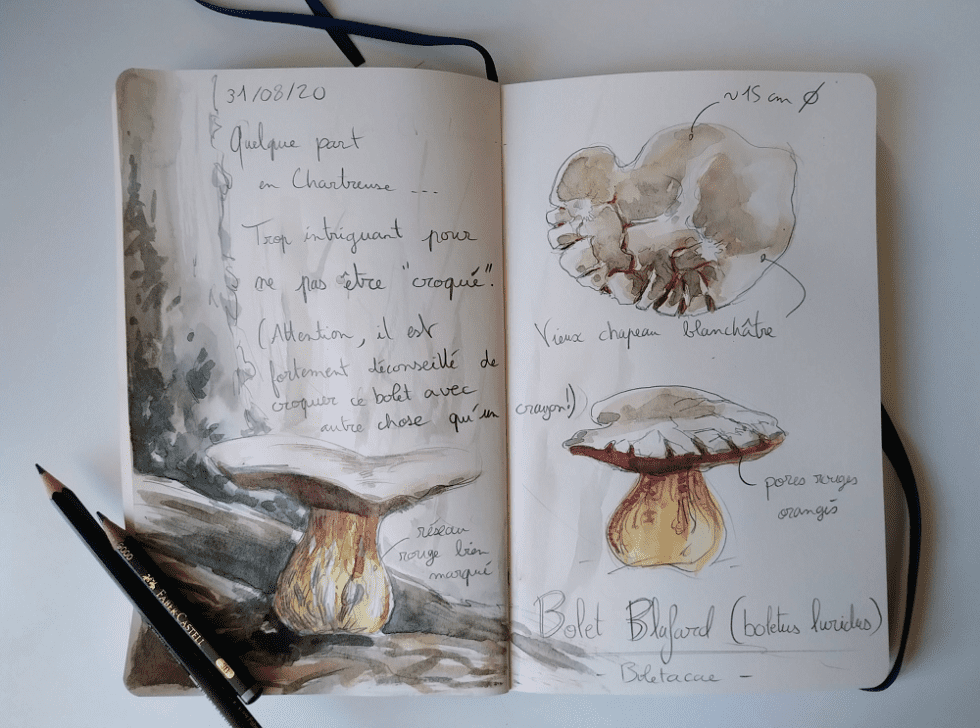 31/08/20
Quelque part
en Chartreuse ...
Trop intriguant pour
ne pas être "croqué".
(Attention, il est
fortement déconseillé de
croquer ce bolet avec
autre chose qu'un crayon!)
réseau
rouge bien
marqué
~15 cm Ø
Vieux chapeau blanchâtre
pores rouges
orangés
Bolet Blafard (boletus luridus)
Boletacae -
9000 FABER-CASTELL